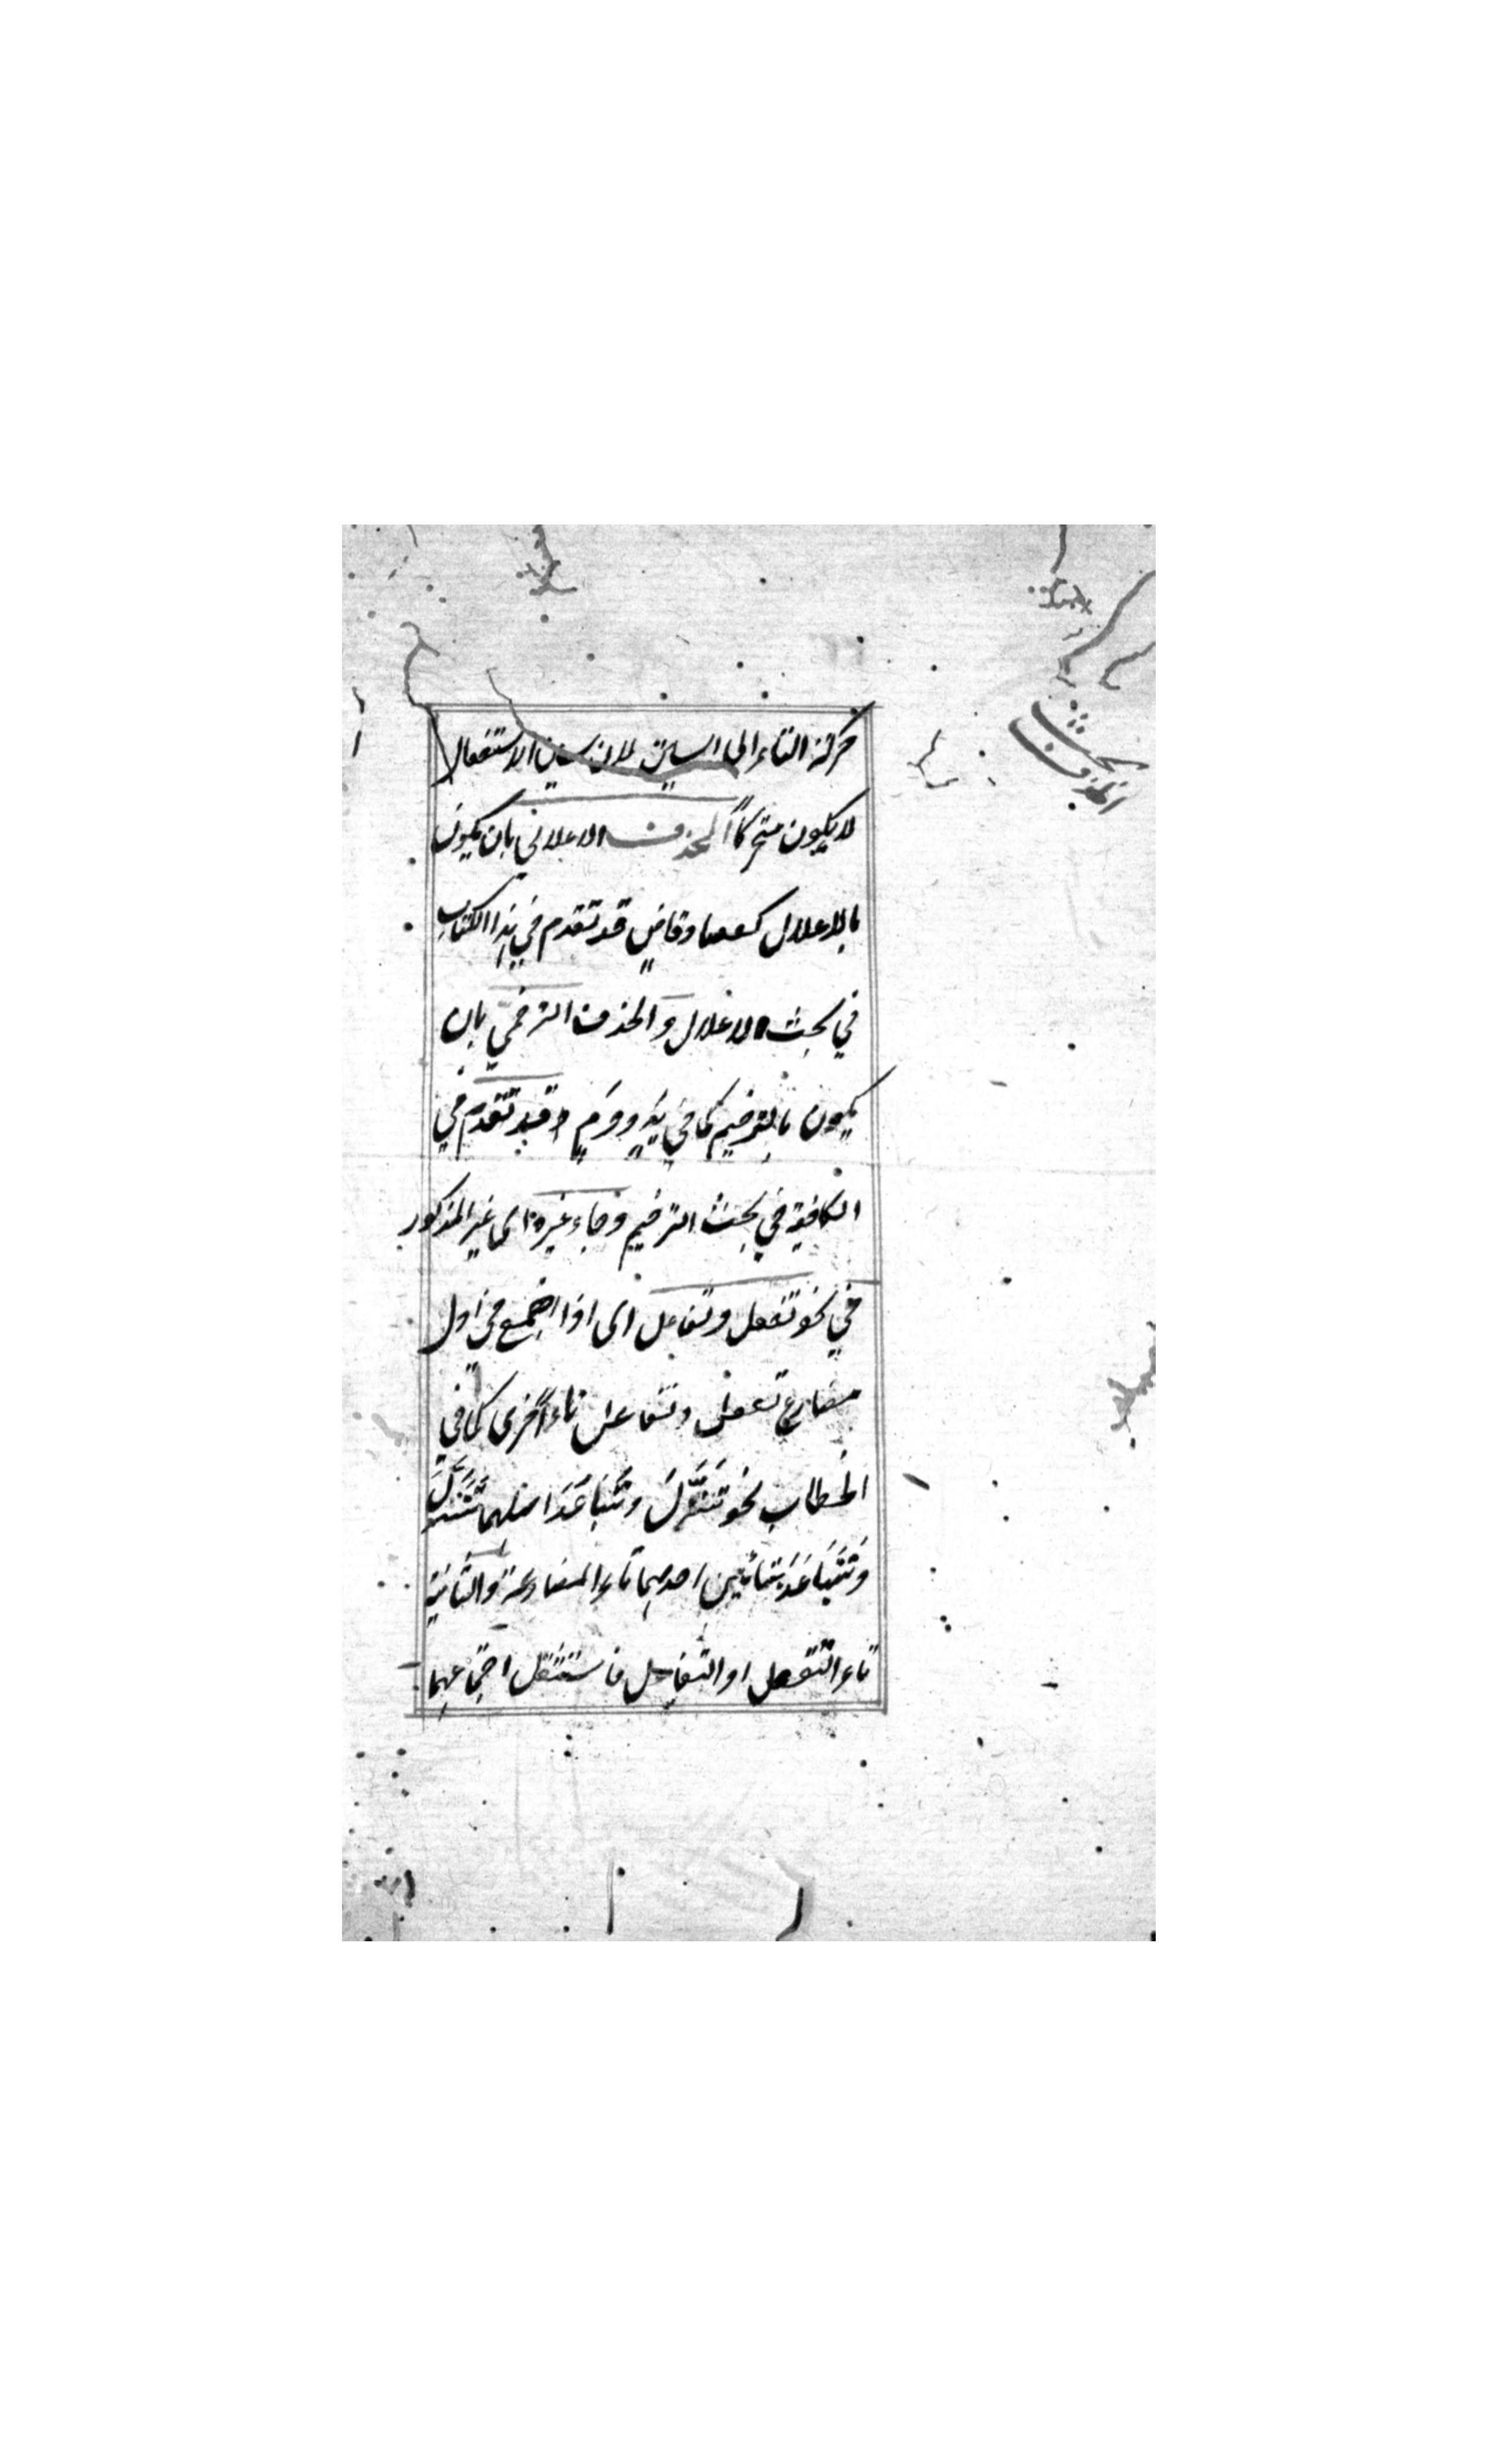 حركة التاء الى السين لان سين الاستفعال
لا يكون متحركاً الحذف الاعلالي بان يكون
بالاعلال كعصا وقاضٍ قد تقدم في هذا الكتاب
في بحث الاعلال والحذف الترخيمي بان
يكون بالترخيم كما في يدٍ ودمٍ وقد تقدم في
الكافية في بحث الترخيم وجاء غيره اى غير المذكور
في نحو تفعل وتفاعل اى اذا اجتمع في اول
مضارع تفعل وتفاعل تاء اُخرى كما في
الخطاب نحو تَنَزَّلَ وتَبَاعَدَ اصلهما تَتَنَزَّلَ
وَتَتَبَاعَدَ بتائين احديهما تاء المضارعة والثانية
تاء التفعل او التفاعل فاستثقل اجتماعهما
بحث
الحذف